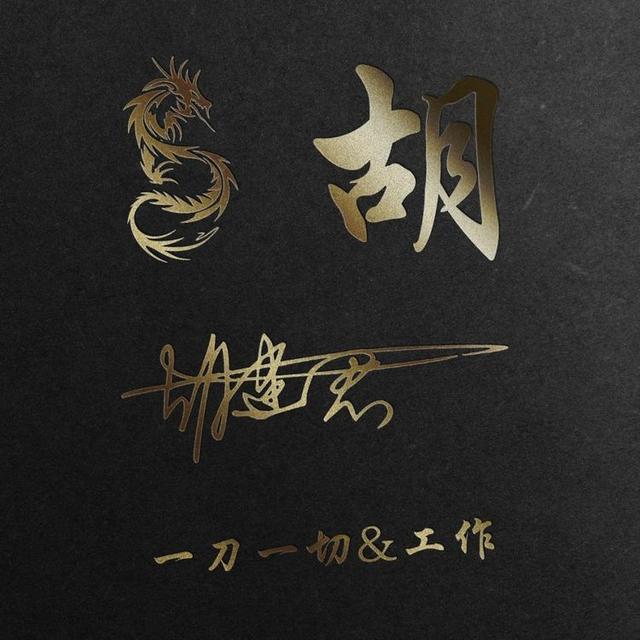 胡
胡建
一刀一切&工作